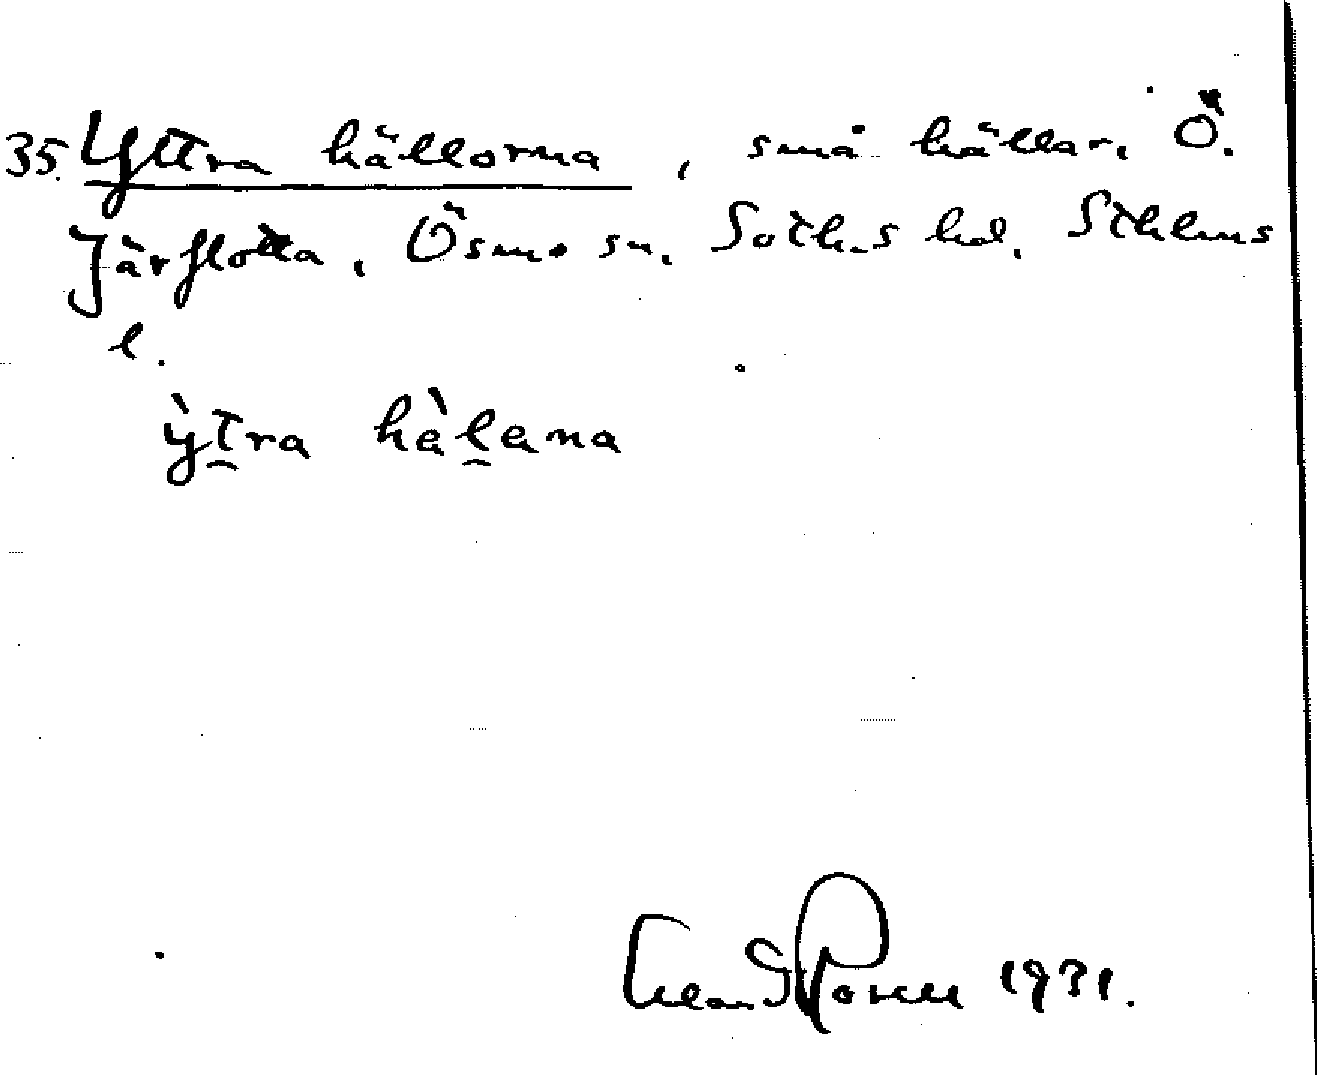 35. Yttra hällorna, små hällar, Ö.
Järflotta, Ösmo sn, Soth-s hd. Sthlms
l.
ỳtra hàlana
1931.